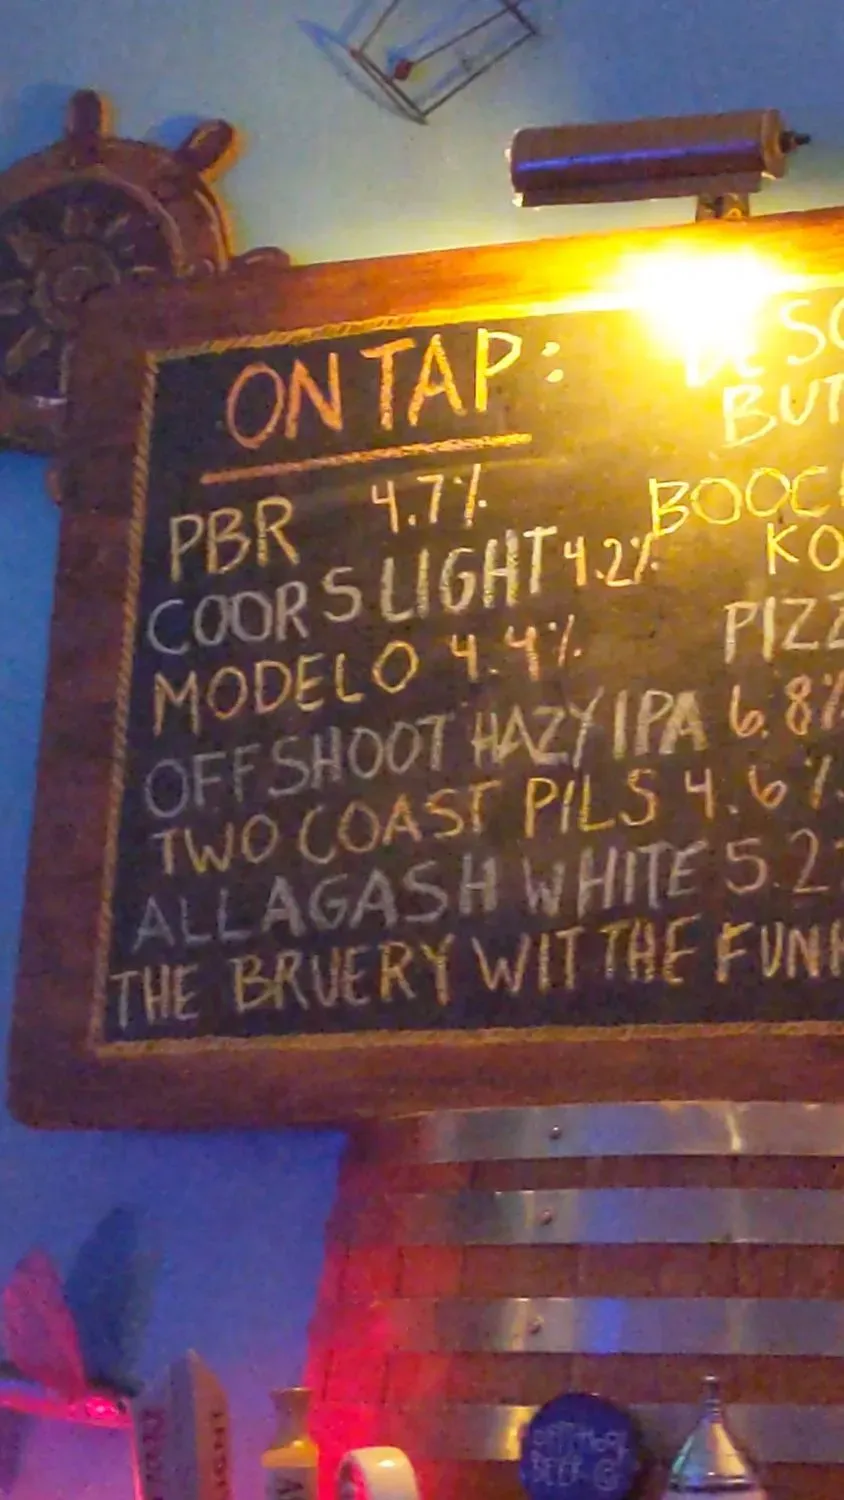 ON TAP:
PBR 4.7%
COORS LIGHT 4.2%
MODELO 4.4%
OFFSHOOT HAZY IPA 6.8%
TWO COAST PILS 4.6%
ALLAGASH WHITE 5.2
THE BRUERY WIT THE FUNK
DESC
BUT
BOOCH
KO
PIZZ